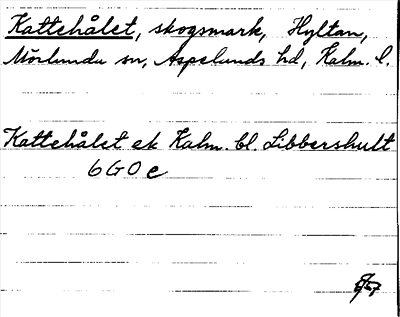 Kattehålet, skogsmark, Hyltan,
Mörlunda sn, Aspelands hd, Kalm. l.
Kattehålet ek Kalm. bl. Libbershult
6G0c